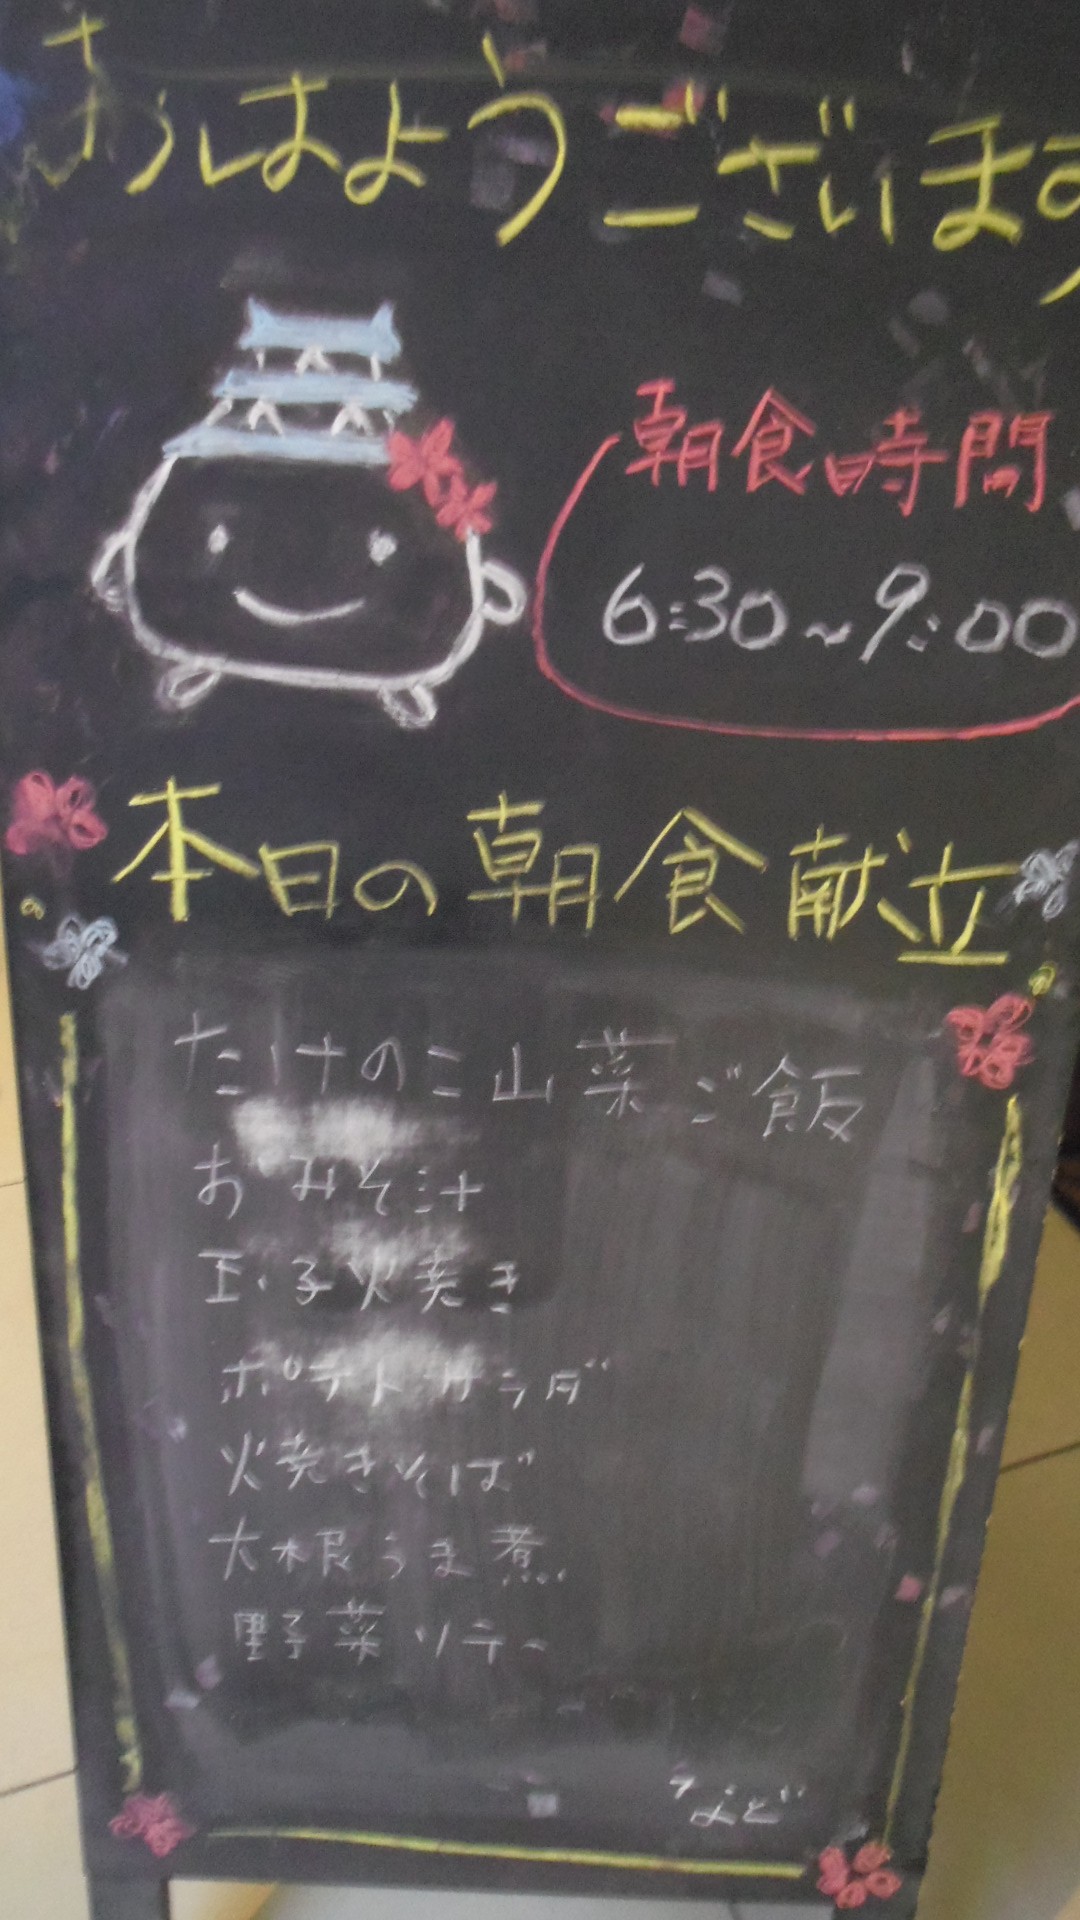 おはようございます
朝食時間
6:30~9:00
本日の朝食献立
たけのこ山菜ご飯
おみそ汁
玉子焼き
ポテトサラダ
焼きそば
大根うま煮
野菜ソテー
など